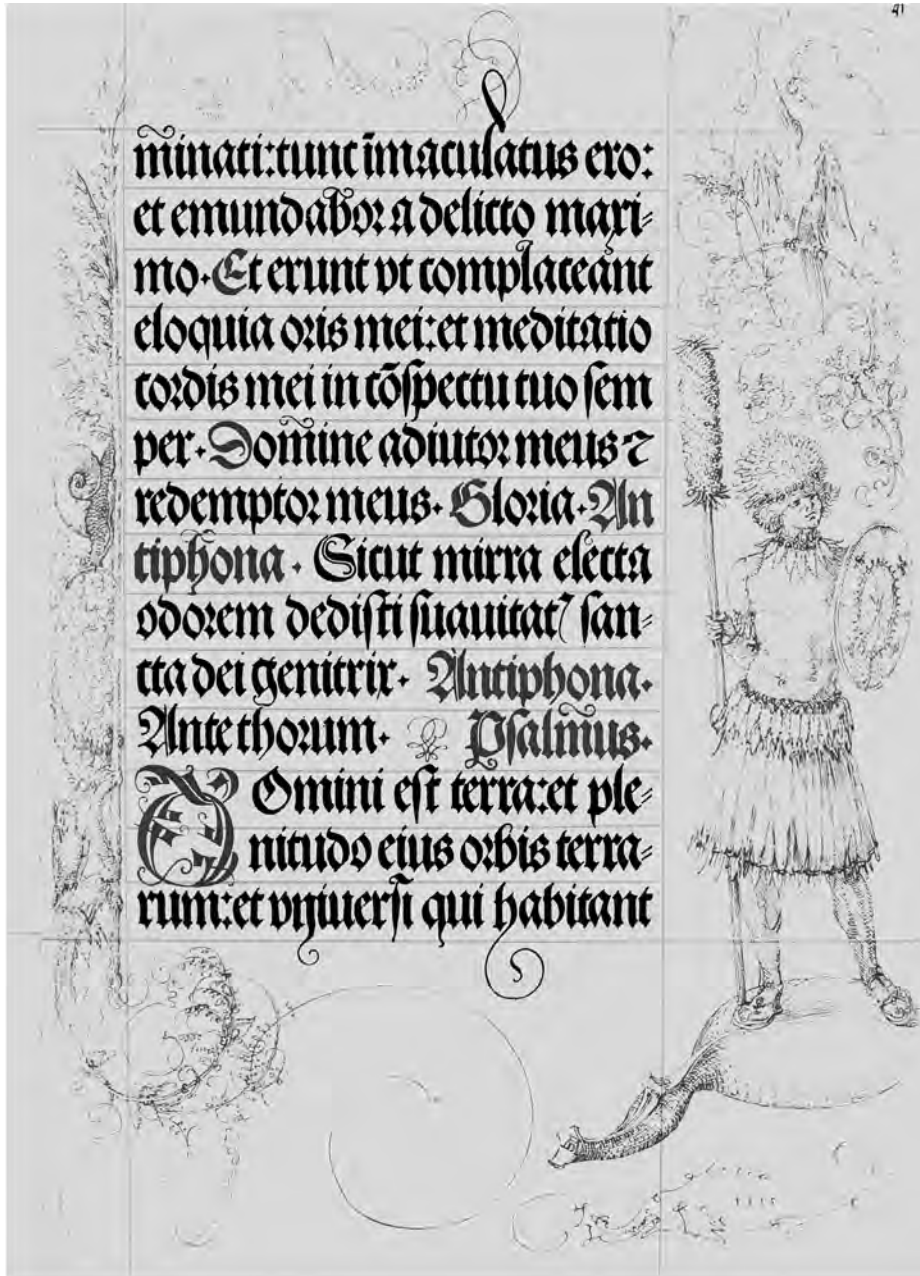 41
m̃inati:tunc īmaculatus ero:
et emundabor a delicto maxi-
mo. Et erunt vt complaceant
eloquia oris mei:et meditatio
cordis mei in cōspectu tuo sem
per. Dom̃ine adiutor meus ⁊
redemptor meus. Gloria. An
tiphona. Sicut mirra electa
odorem dedisti suauitat᷒ san-
cta dei genitrix. Antiphona.
Ante thorum. Psalm̃us.
DOmini est terra:et ple-
nitudo eius orbis terra-
rum:et vniuersi qui habitant